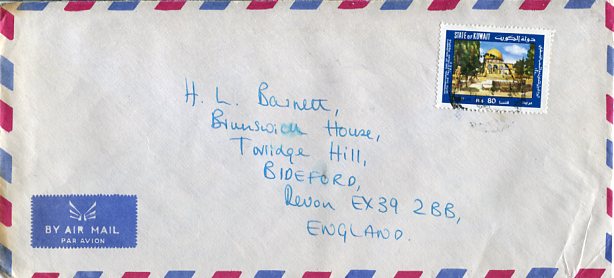 STATE OF KUWAIT دولة الكويت
80
H. L. Barnett,
Brunswick House,
Torridge Hill,
BIDEFORD,
Devon EX39 2BB,
ENGLAND.
BY AIR MAIL
PAR AVION